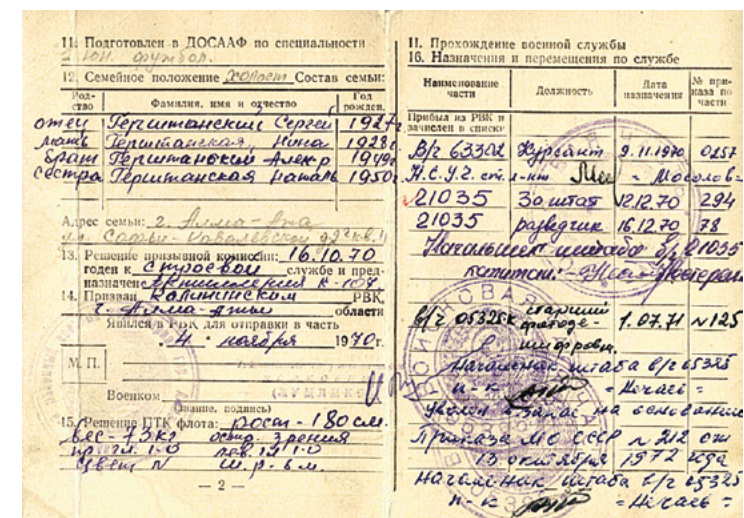 11. Подготовлен в ДОСААФ по специальности
12. Семейное положение холост Состав семьи:
Родство Фамилия, имя и отчество Год рожден.
отец Герштанский Сергей 1927г
мать Герштанская Нина 1928г
брат Герштанский Алекр 1949г
сестра Герштанская Наталь 1950г
Адрес семьи: г. Алма-Ата
ул. Софьи-Ковалевской
13. Решение призывной комиссии: 16.10.70
годен к строевой службе и пред-
назначен
14. Призван Калининским РВК,
г. Алма-Аты области
Явился в РВК для отправки в часть
"4" ноября 1970г.
М. П.
Военком
(звание, подпись)
15. Решение ПТК флота: рост - 180 см.
вес - 73 кг остр. зрения
пр. гл. 1-0 лев. гл 1-0
цвет N ш.р. 6 м.
— 2 —
II. Прохождение военной службы
16. Назначения и перемещения по службе
Наименование части Должность Дата назначения № приказа по части
Прибыл из РВК и
зачислен в списки
В/г 63302 Курсант 9.11.1970 0257
Н.С.У.2. ст. л-нт = Мосолов =
21035 За штат 12.12.70 294
21035 разведчик 16.12.70 78
Начальник штаба в/г 21035
капитан:
в/г 05325 старший 1.07.71 N125
фотоде-
шифровщ.
Начальник штаба в/г 05325
п-к = Нечаев =
Уволен в запас на основании
Приказа МО СССР N 212 от
13 октября 1972 года
Начальник штаба в/г 05325
п-к = Нечаев =